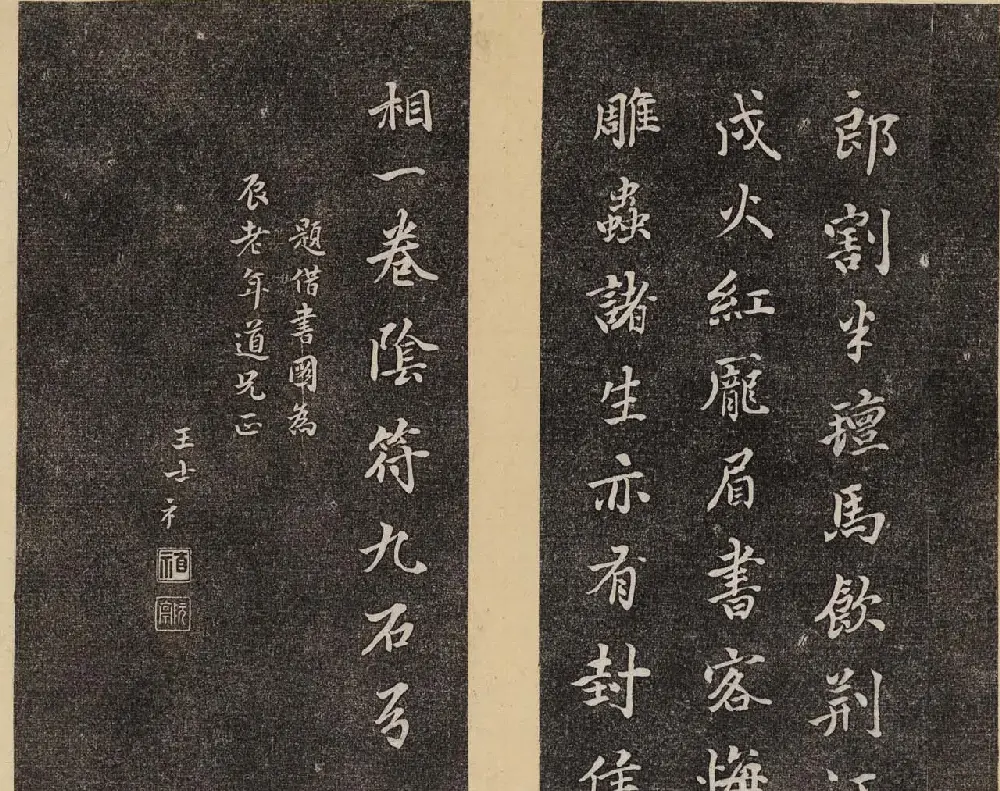 郎割半氊馬飲荆江
戍火紅龐眉書客悔
雕蟲諸生亦有封侯
相一卷陰符九石弓
題借書圖為
辰老年道兄正
王士礻